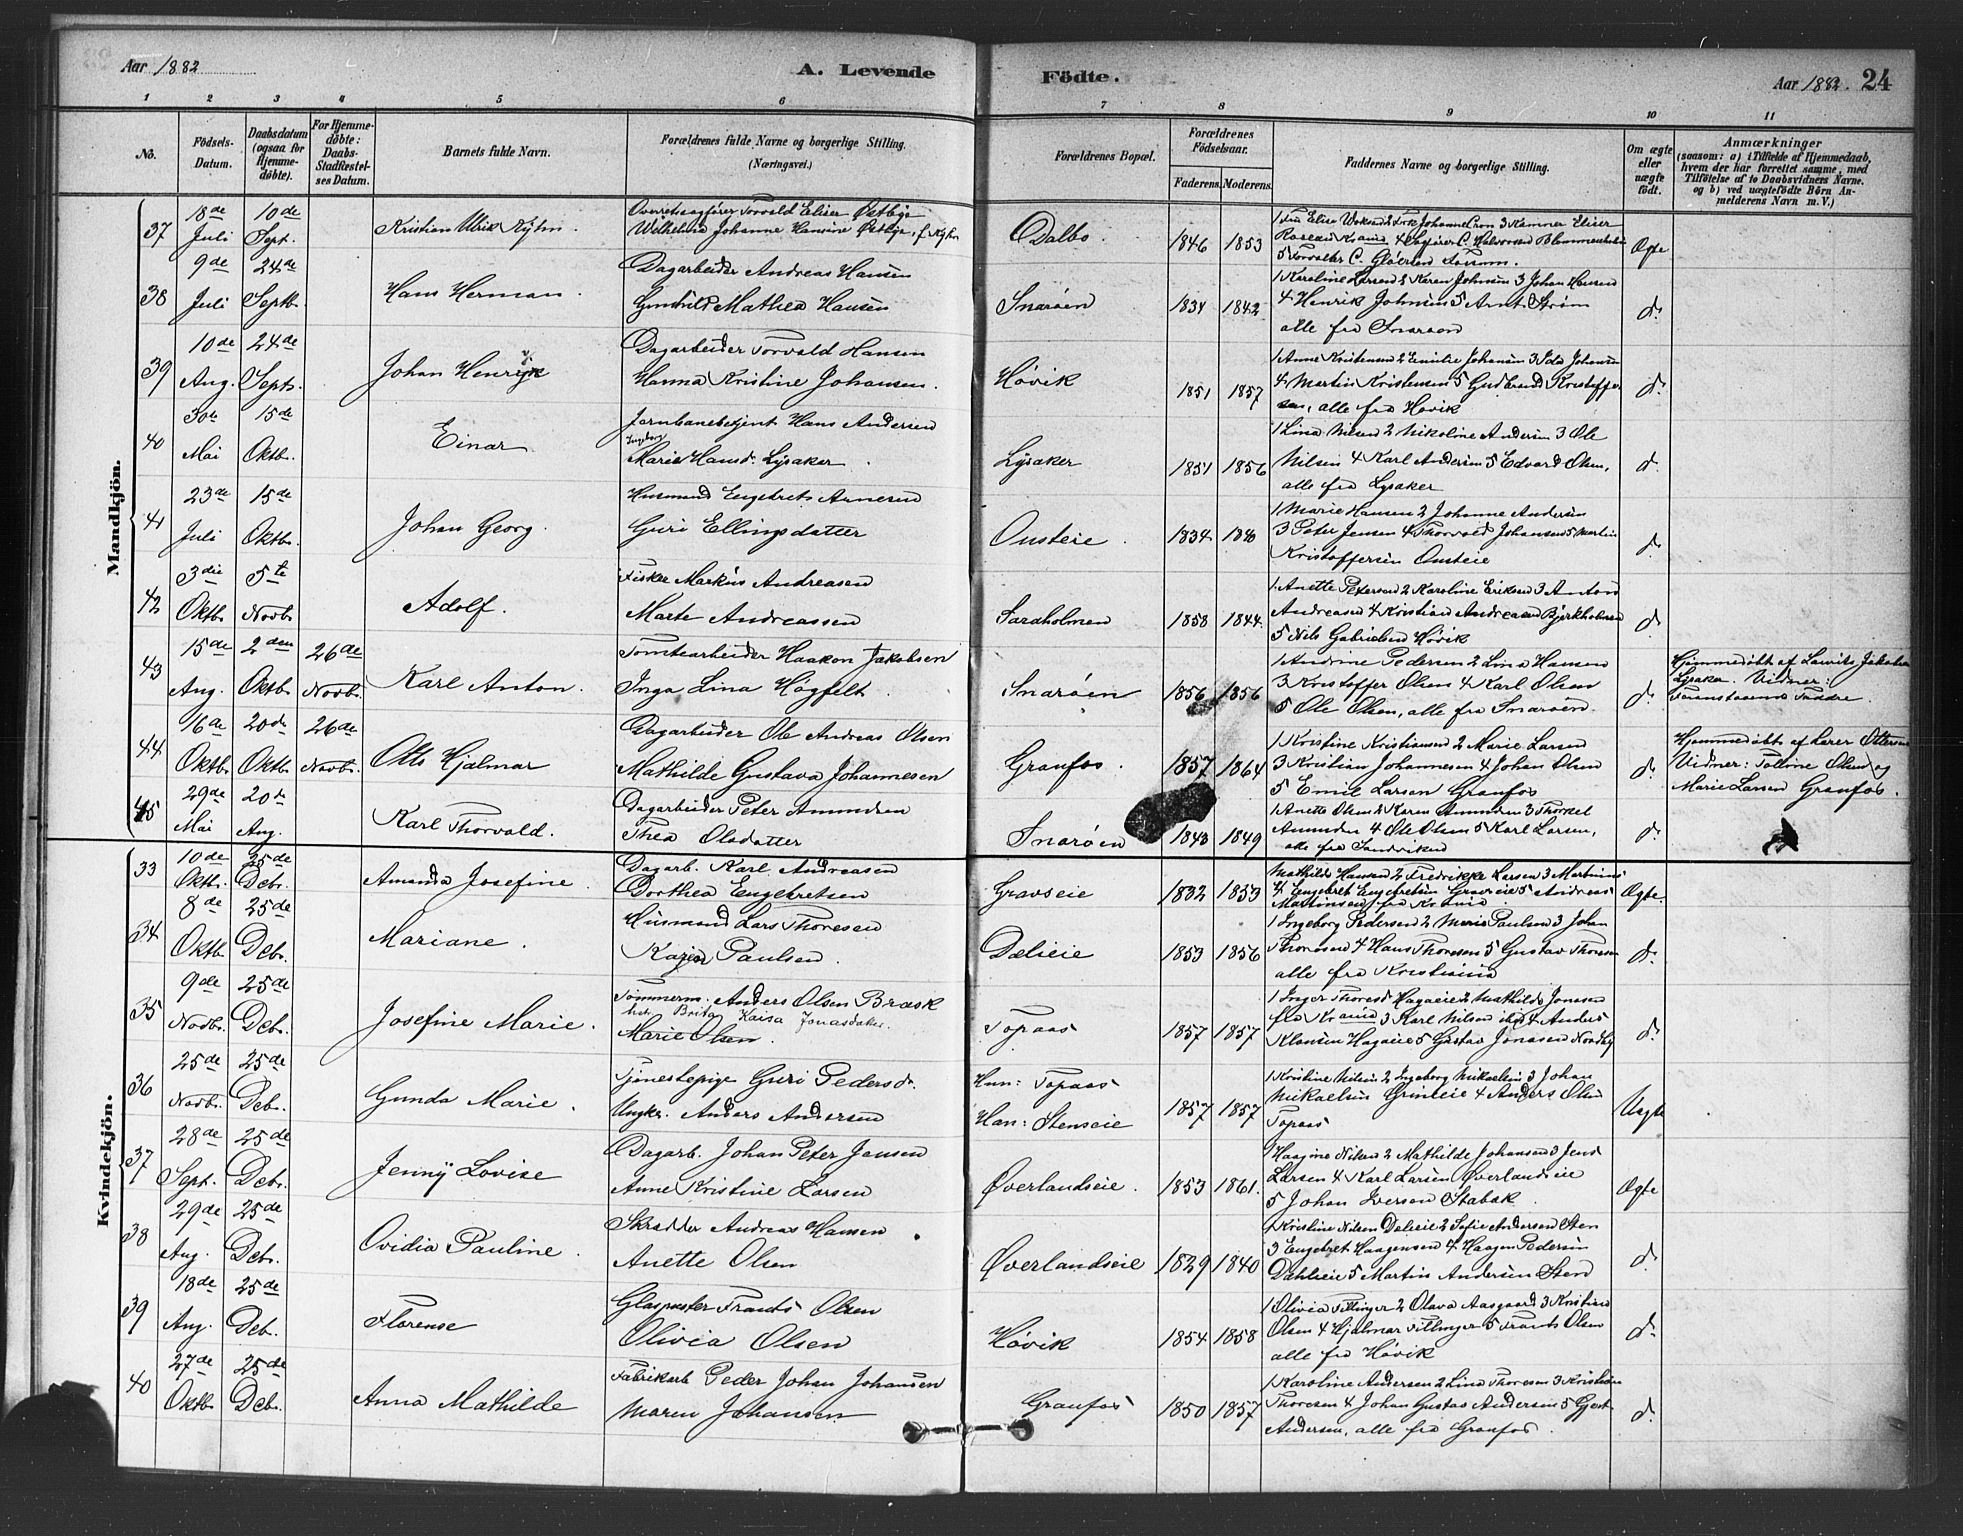 Aar 1882
A. Levende
Födte.
Aar 1882. 24
1 2 3 4 5 6 7 8 9 10 11
No.
Födsels-Datum.
Daabsdatum (ogsaa for Hjemme-döbte).
For Hjemme-döbte: Daabs-Stadfæstel-ses Datum.
Barnets fulde Navn.
Forældrenes fulde Navne og borgerlige Stilling. (Næringsvei.)
Forældrenes Bopæl.
Forældrenes Födselsaar.
Faderens. Moderens.
Faddernes Navne og borgerlige Stilling.
Om ægte eller uægte födt.
Anmærkninger
(saasom: a) i Tilfælde af Hjemmedaab, hvem der har forrettet samme, med Tilföielse af to Daabsvidners Navne, og b) ved uægtefödte Börn An-melderens Navn m. V.)
Mandkjön.
37 18de Juli 10de Sept. Kristian Ulrik
Torvald Elieser Østbye
Wilhelmine Johanne Hansine Østbye, f.
Dalbo. 1846 1853
Ægte
38 9de Juli 24de Septb. Hans Herman.
Dagarbeider Andreas Hansen
Gunhild Mathea Hansen
Snarøen 1834 1842
1 Karoline Larsen 2 Karen Johnsen 3 Johan Hansen
4 Henrik Johnsen 5 Arnt Strøm
alle fra Snarøen
d.
39 10de Aug. 24de Sept. Johan Henrik
Dagarbeider Torvald Hansen
Hanna Kristine Johansen.
Høvik 1851 1857
1 Anne Kristensen 2 Emilie Johansen 3 Ida Johansen
4 Martin Kristensen 5 Gudbrand Kristoffer
sen, alle fra Høvik
d.
40 30te Mai 15de Oktb. Einar
Jernbanebetjent Hans Andersen
Ingeborg
Marie Hansd. Lysaker.
Lysaker 1851 1856
1 Lina Nilsen 2 Nikoline Andersen 3 Ole
Nilsen 4 Karl Andersen 5 Edvard Olsen,
alle fra Lysaker
d.
41 23de Juli 15de Oktb. Johan Georg.
Husmand Engebret Arnesen
Guri Ellingsdatter
Ousteie. 1834 1840
1 Marie Hansen 2 Johanne Andersen
3 Peter Jensen 4 Thorvald Johansen 5 Martin
Kristoffersen Ousteie
d.
42 3die Oktb. 5te Novb. Adolf.
Fisker Markus Andreasen
Marte Andreassen
Saraholmen 1858 1844.
1 Anette Petersen 2 Karoline Eriksen 3 Anton
Andreasen 4 Kristian Andreasen Bjerkholmen
5 Nils Gabrielsen Høvik
d.
43 15de Aug. 2den Oktb. 26de Novb. Karl Anton.
Tomtearbeider Haakon Jakobsen
Inga Lina Høgfelt.
Snarøen 1856 1856
1 Andrine Pedersen 2 Lina Hansen
3 Kristoffer Olsen 4 Karl Olsen
5 Ole Olsen, alle fra Snarøen.
d.
Hjemmedøbt af
Lysaker. Vidner:
Faddre.
44 16de Oktb. 20de Oktb. 26de Novb. Otto Hjalmar
Dagarbeider Ole Andreas Olsen
Mathilde Gustava Johannesen
Granfos. 1857 1864
1 Kristine Kristiansen 2 Marie Larsen
3 Kristian Johannesen 4 Johan Olsen
5 Emil Larsen Granfos
d.
Hjemmedøbt af Lærer Ottersen
Vidner: Olsen og
Marie Larsen Granfos.
45 29de Mai 20de Aug. Karl Thorvald.
Dagarbeider Peter Amundsen
Thea Olsdatter
Snarøen 1843 1849
1 Anette Olsen 2 Karen Amundsen 3 Torkel
Amundsen 4 Ole Olsen 5 Karl Larsen,
alle fra Sandviken
d.
Kvindekjön.
33 10de Oktb. 25de Debr. Amanda Josefine.
Dagarb. Karl Andreasen
Dorthea Engebretsen
Gravseie 1832 1853
Mathilde Hansen 2 Fredrikke Larsen 3 Martinius
4 Engebret Engebretsen Gravseie 5 Andreas
Ægte.
34 8de Oktb. 25de Debr. Mariane.
Husmand Lars Thoresen
Karen Paulsen.
Dælieie 1853 1856
1 Ingeborg Pedersen 2 Marie Paulsen 3 Johan
Thoresen 4 Hans Thoresen 5 Gustav Thoresen
alle fra Kristiania
d.
35 9de Novb. 25de Debr. Josefine Marie.
Tømmerm. Anders Olsen Bræsk
Brita Kaisa Jonasdatter.
Marie Olsen.
Topaas 1857 1857
1 Inger Thoresd Hagaeie 2 Mathilde Jonasen
fra Krania 3 Karl Nilsen 4 Anders
Klausen Hagaeie 5 Gustav Jonasen Nordby
d.
36 25de Novb. 25de Debr. Gunda Marie.
Tjenestepige Guri Pedersd.
Ungkr. Anders Andersen
Hun: Topaas
Han: Stenseie
1857 1857
1 Kristine Nilsen 2 Ingeborg Mikaelsen 3 Johan
Mikaelsen Grinieie 4 Anders Olsen
Topaas
Uægte
37 28de Sept. 25de Debr. Jenny Lovise
Dagarb. Johan Peter Jensen
Anne Kristine Larsen
Øverlandseie. 1853 1861.
Nilsen 2 Mathilde Johansen 3 Jens
Larsen 4 Karl Larsen Øverlandseie
5 Johan Iversen Stabæk.
Ægte
38 29de Aug. 25de Debr. Ovidia Pauline.
Skrædder Andreas Hansen
Anette Olsen
Øverlandseie 1829 1840
1 Kristine Nilsen Dælieie 2 Sofie Andersen Sten
3 Engebret Haagensen 4 Haagen Pedersen
Dæhlieie 5 Martin Andersen Sten
d.
39 18de Aug. 25de Debr. Florense
Glaspuster Frants Olsen
Olivia Olsen
Høvik 1854 1858
1 Olivia Fillinger 2 Olava Aasgaard 3 Kristine
Olsen 4 Hjalmar Fillinger 5 Frants Olsen
alle fra Høvik
d.
40 27de Oktb. 25de Debr. Anna Mathilde
Fabrikarb Peder Johan Johansen
Maren Johansen
Granfos 1850 1857
1 Karoline Andersen 2 Lina Thoresen 3 Kristian
Thoresen 4 Johan Gustav Andersen 5 Gjert
Andersen, alle fra Granfos.
d.